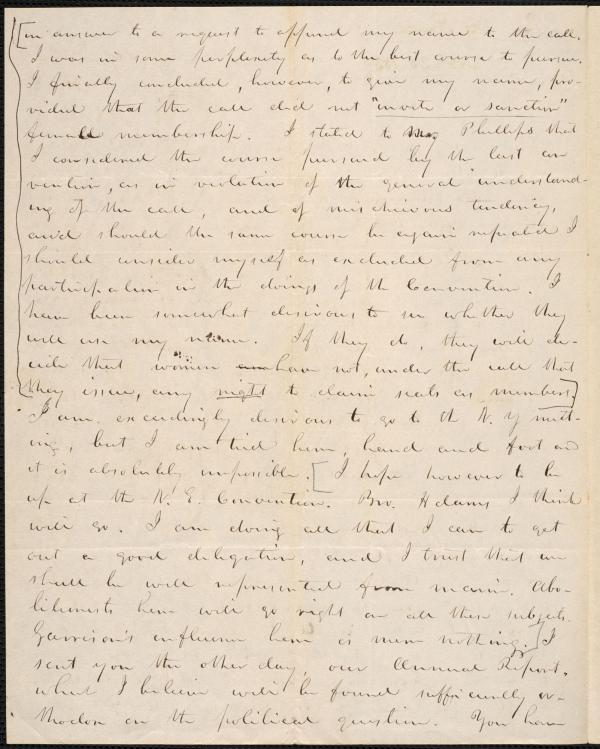 [in answer to a request to append my name to the call.
I was in some perplexity as to the best course to pursue.
I finally concluded, however, to give my name, pro-
vided that the call did not "invite or sanction"
female membership. I stated to Phillips that
I considered the course pursued by the last con
vention, as in violation of the general understand-
ing of the call, and of mischievous tendency,
and should the same course be again repeated I
should consider myself as excluded from any
participation in the doings of the Convention. I
have been somewhat desirous to see whether they
will use my name. If they do, they will de-
cide that women have not, under the call that
they issue, any right to claim seats as members.]
I am exceedingly desirous to go to the N. Y meet-
ing, but I am tied here, hand and foot and
it is absolutely impossible. [I hope however to be
up at the N. E. Convention. Bro. Adams I think
will go. I am doing all that I can to get
out a good delegation, and I trust that we
shall be well represented from Maine. Abo-
litionists here will go right on all these subjects.
Garrison's influence here is mere nothing.] I
sent you the other day, our Annual Report,
what I believe will be found sufficiently or-
thodox on the political question. You have